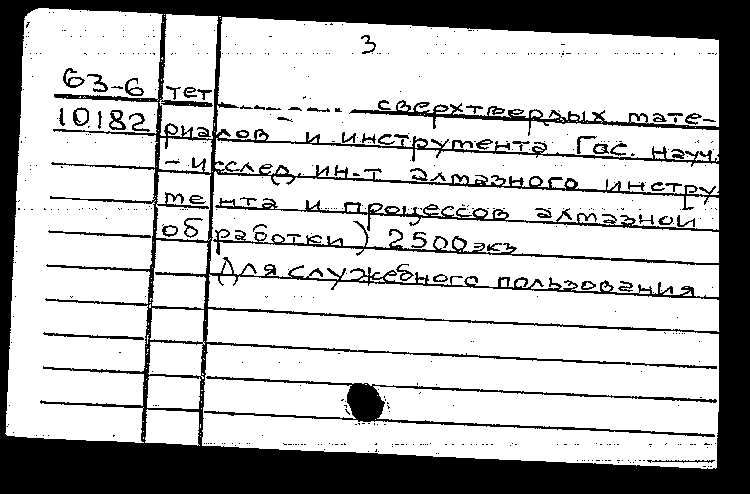 3
63-6 тет сверхтвердых мате-
10182 риалов и инструмента Гос. науч.
-исслед. ин-т алмазного инстру-
мента и процессов алмазной
обработки) 2500экз
Для служебного пользования